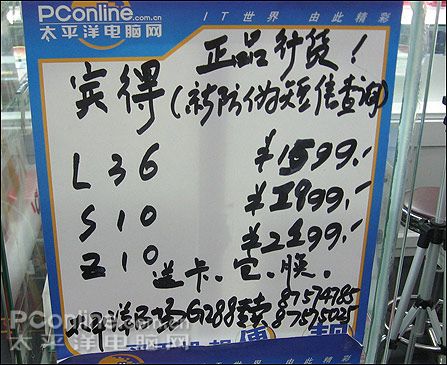 PConline.com.cn
太平洋电脑网
IT世界 由此精彩
正品行货!
宾得(新防伪短信查询)
L36 ¥1599.-
S10 ¥1999.-
Z10 ¥2199.-
送卡.包.膜.
G288 87574785
87575025
PConline.com.cn
太平洋电脑网
IT世界 由此精彩